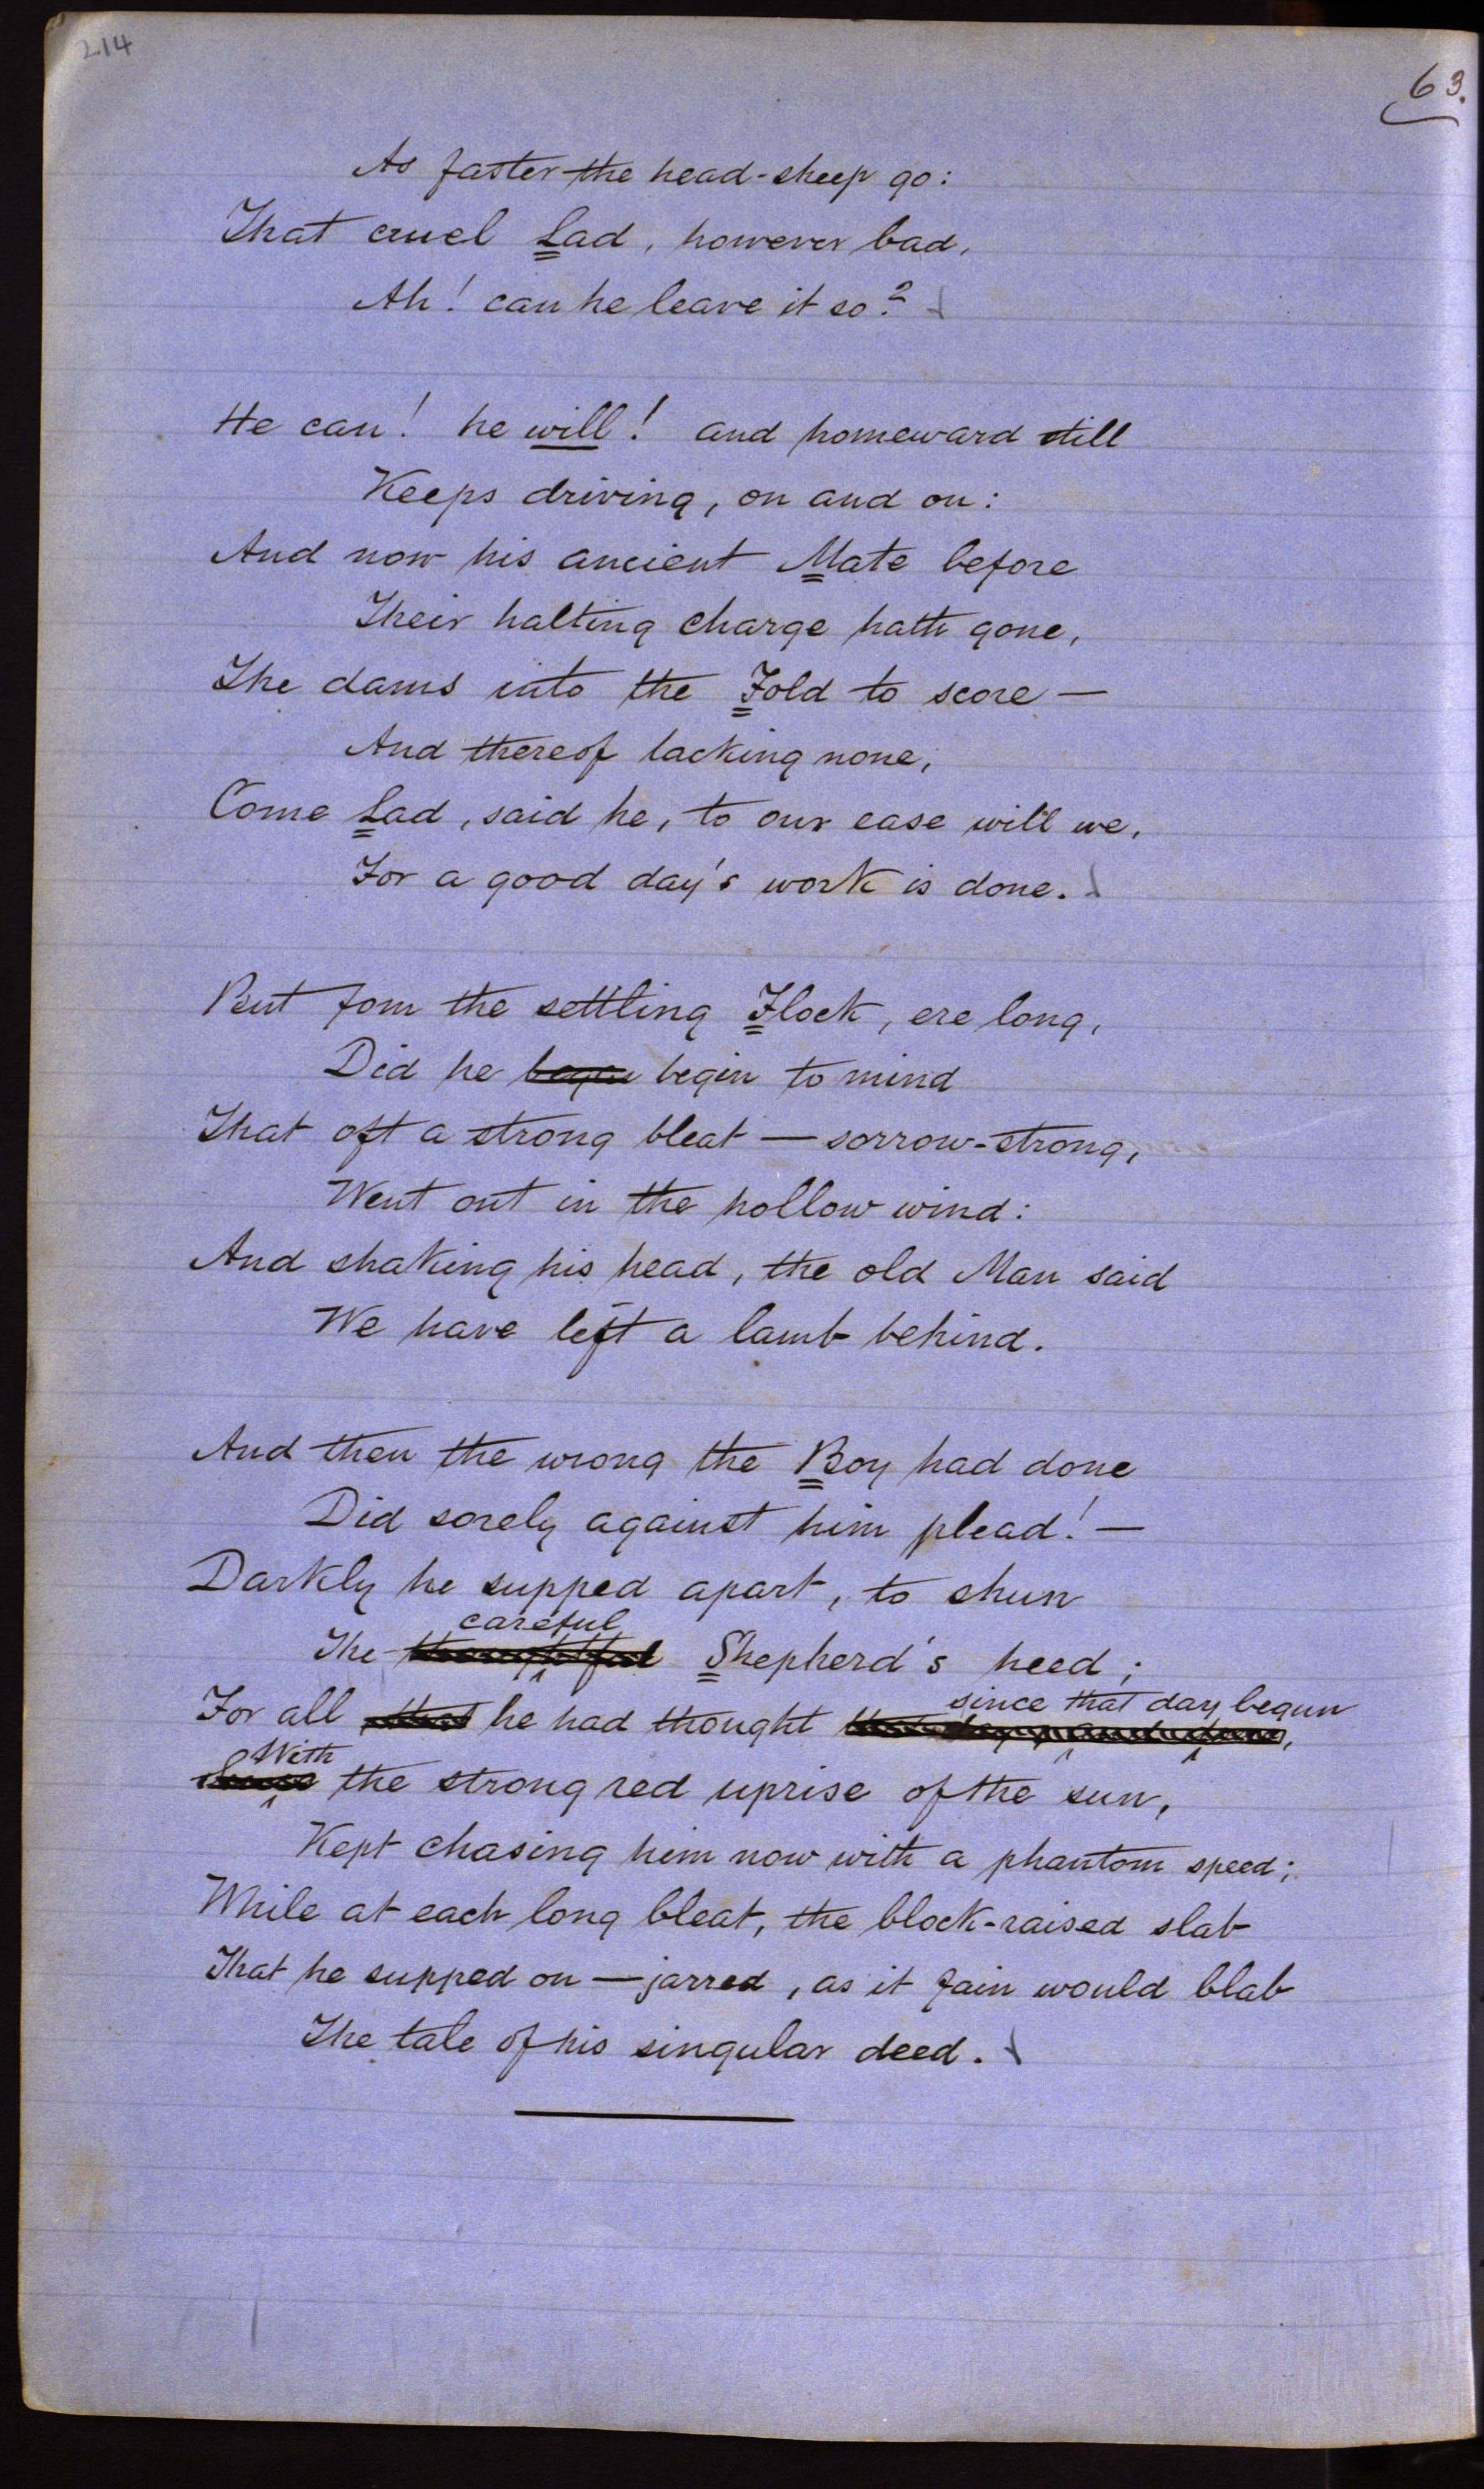 214
63.
As faster the head-sheep go:
That cruel Lad, however bad,
Ah! can he leave it so?
He can! he will! and homeward still
Keeps driving, on and on:
And now his ancient Mate before
Their halting charge hath gone,
The dams into the Fold to score —
And thereof lacking none,
Come Lad, said he, to our ease will we,
For a good day's work is done.
But fom the settling Flock, ere long,
Did he begin to mind
That oft a strong bleat — sorrow-strong,
Went out in the hollow wind:
And shaking his head, the old Man said
We have left a lamb behind.
And then the wrong the Boy had done
Did sorely against him plead! —
Darkly he supped apart, to shun
careful
The thoughtful Shepherd's heed;
since that day begun
For all that he had thought
With
Since the strong red uprise of the sun,
Kept chasing him now with a phantom speed;
While at each long bleat, the block-raised slab
That he supped on — jarred, as it fain would blab
The tale of his singular deed.